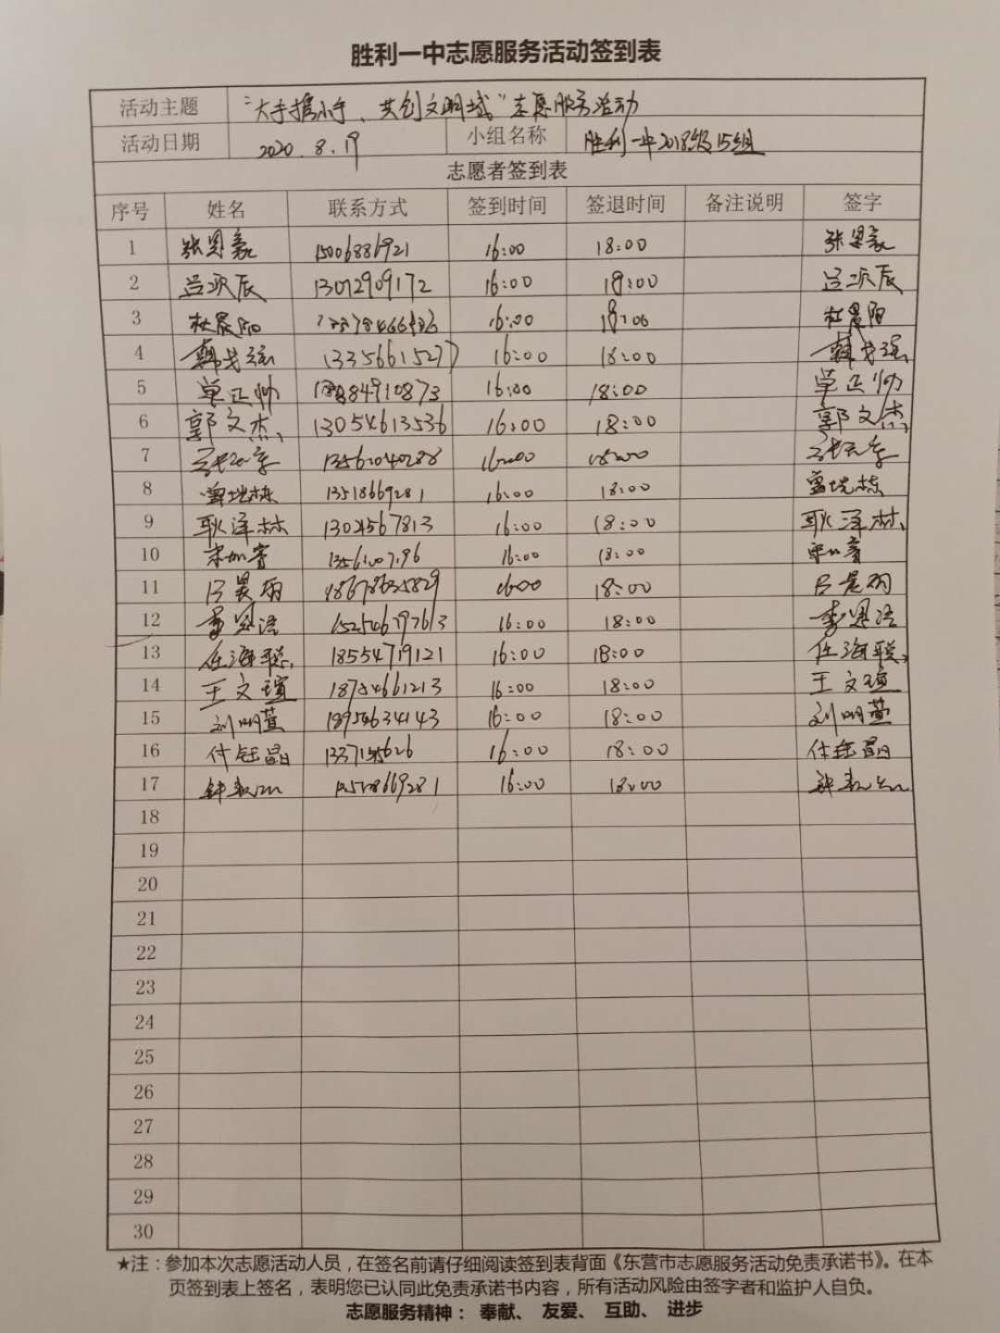 胜利一中志愿服务活动签到表
活动主题 "大手携小手、共创文明城"志愿服务活动
活动日期 2020.8.19 小组名称 胜利一中2018级15组
志愿者签到表
序号 姓名 联系方式 签到时间 签退时间 备注说明 签字
1 张恩豪 15006886921 16:00 18:00 张恩豪
2 吕沠辰 13012909172 16:00 18:00 吕沠辰
3 杜晨阳 16:00 18:00 杜晨阳
4 13356615277 16:00 18:00
5 单正帅 16:00 18:00 单正帅
6 郭文杰 13054613536 16:00 18:00 郭文杰
7 16:00 18:00
8 曹瑞栋 16:00 18:00 曹瑞栋
9 耿泽林 16:00 18:00 耿泽林
10 16:00 18:00
11 吕昊朔 18678635829 16:00 18:00
12 李恩浩 152546797613 16:00 18:00 李恩浩
13 任海聪 18554719121 16:00 18:00 任海聪
14 王文瑄 16:00 18:00 王文瑄
15 刘明萱 18954634143 16:00 18:00 刘明萱
16 付钰晶 16:00 18:00 付钰晶
17 16:00 18:00
18
19
20
21
22
23
24
25
26
27
28
29
30
★注：参加本次志愿活动人员，在签名前请仔细阅读签到表背面《东营市志愿服务活动免责承诺书》。在本
页签到表上签名，表明您已认同此免责承诺书内容，所有活动风险由签字者和监护人自负。
志愿服务精神： 奉献、 友爱、 互助、 进步